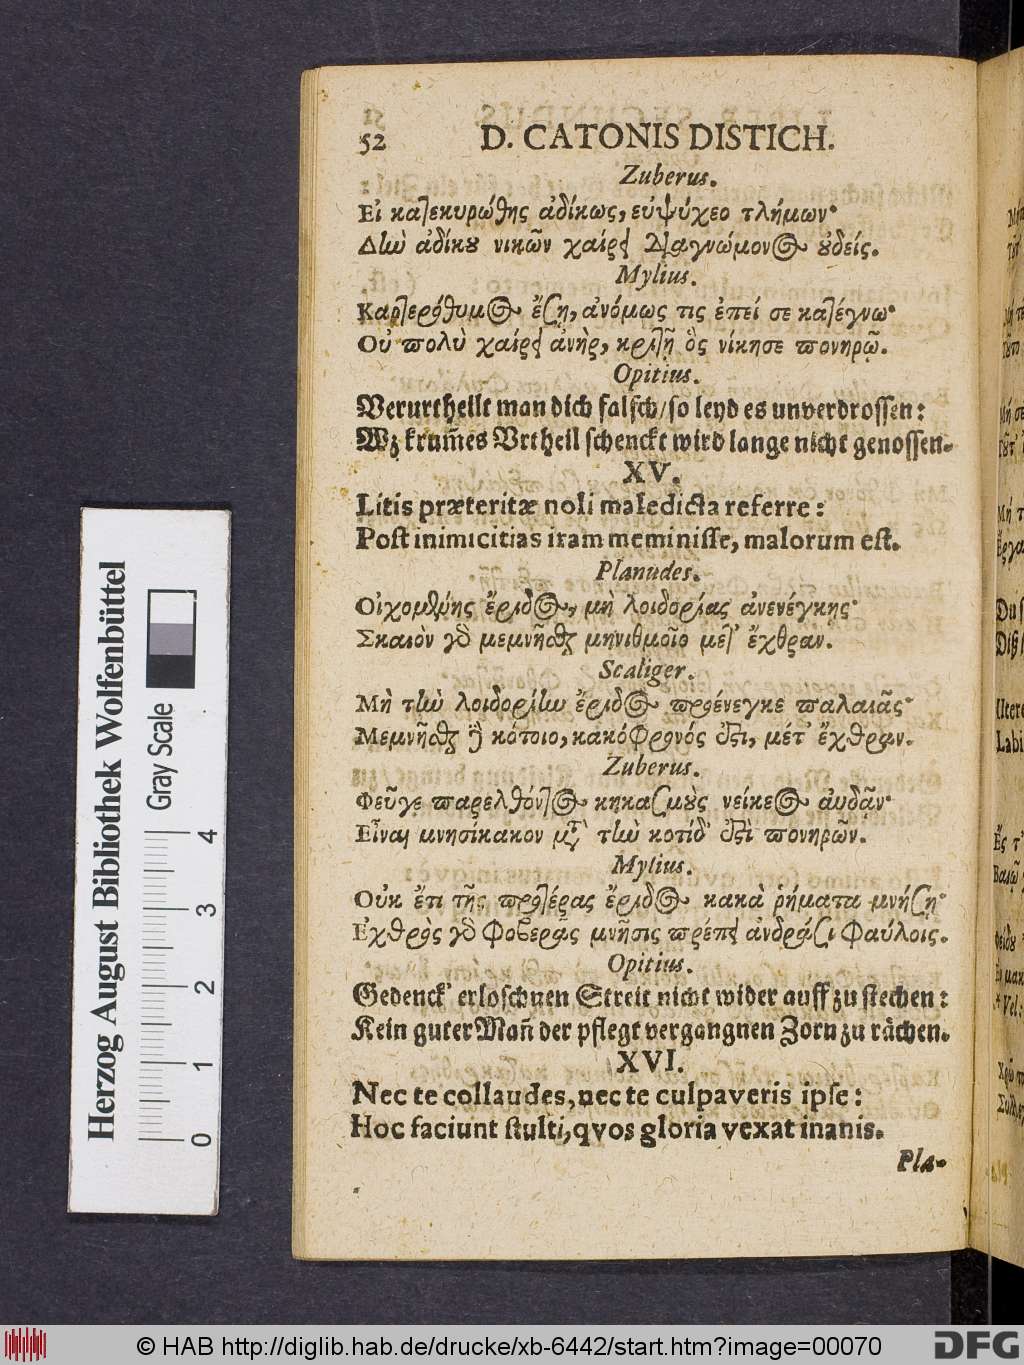 52 D. CATONIS DISTICH.
Zuberus.
Εἰ κατεκυρώθης ἀδίκως, εὐψύχεο τλήμων·
Δίω ἀδίκου νικῶν χαίρει οὐδείς.
Mylius.
Καρτερόθυμος ἔζη, ἀνόμως τις ἐπεί σε κατέγνω·
Οὐ πολὺ χαίρει ἀνὴρ, κριτῇ ὃς νίκησε πονηρῷ.
Opitius.
Verurtheilt man dich falsch/so leyd es unverdrossen:
Wz krum̃es Vrtheil schenckt wird lange nicht genossen.
XV.
Litis præteritæ noli maledicta referre:
Post inimicitias iram meminisse, malorum est.
Planudes.
Οἰχομένης ἔριδος, μὴ λοιδορίας ἀνενέγκῃς·
Σκαιὸν γὸ μεμνῆσθαι μηνιθμοῖο μετ' ἔχθραν.
Scaliger.
Μὴ τὼ λοιδορίω ἔριδος προένεγκε παλαιᾶς·
Μεμνῆσθαι κότοιο, κακόφρονός ἐστι, μέτ' ἔχθραν.
Zuberus.
Φεῦγε παρελθόντος κηκασμοὺς νείκεος αὐδᾷν·
Εἶναι μνησίκακον μετὰ τὼ κοτίδ' ἐστὶ πονηρῶν.
Mylius.
Οὐκ ἔτι τῆς προτέρας ἔριδος κακὰ ῥήματα μνήσῃ·
Ἐχθρὸς γὸ φοβερᾶς μνῆσις πρέπει ἀνδράσι φαύλοις.
Opitius.
Gedenck' erloschnen Streit nicht wider auff zu stechen:
Kein guter Mañ der pflegt vergangnen Zorn zu rächen.
XVI.
Nec te collaudes, nec te culpaveris ipse:
Hoc faciunt stulti, qvos gloria vexat inanis.
Pla-
Herzog August Bibliothek Wolfenbüttel
Gray Scale
0 1 2 3 4
© HAB http://diglib.hab.de/drucke/xb-6442/start.htm?image=00070
DFG